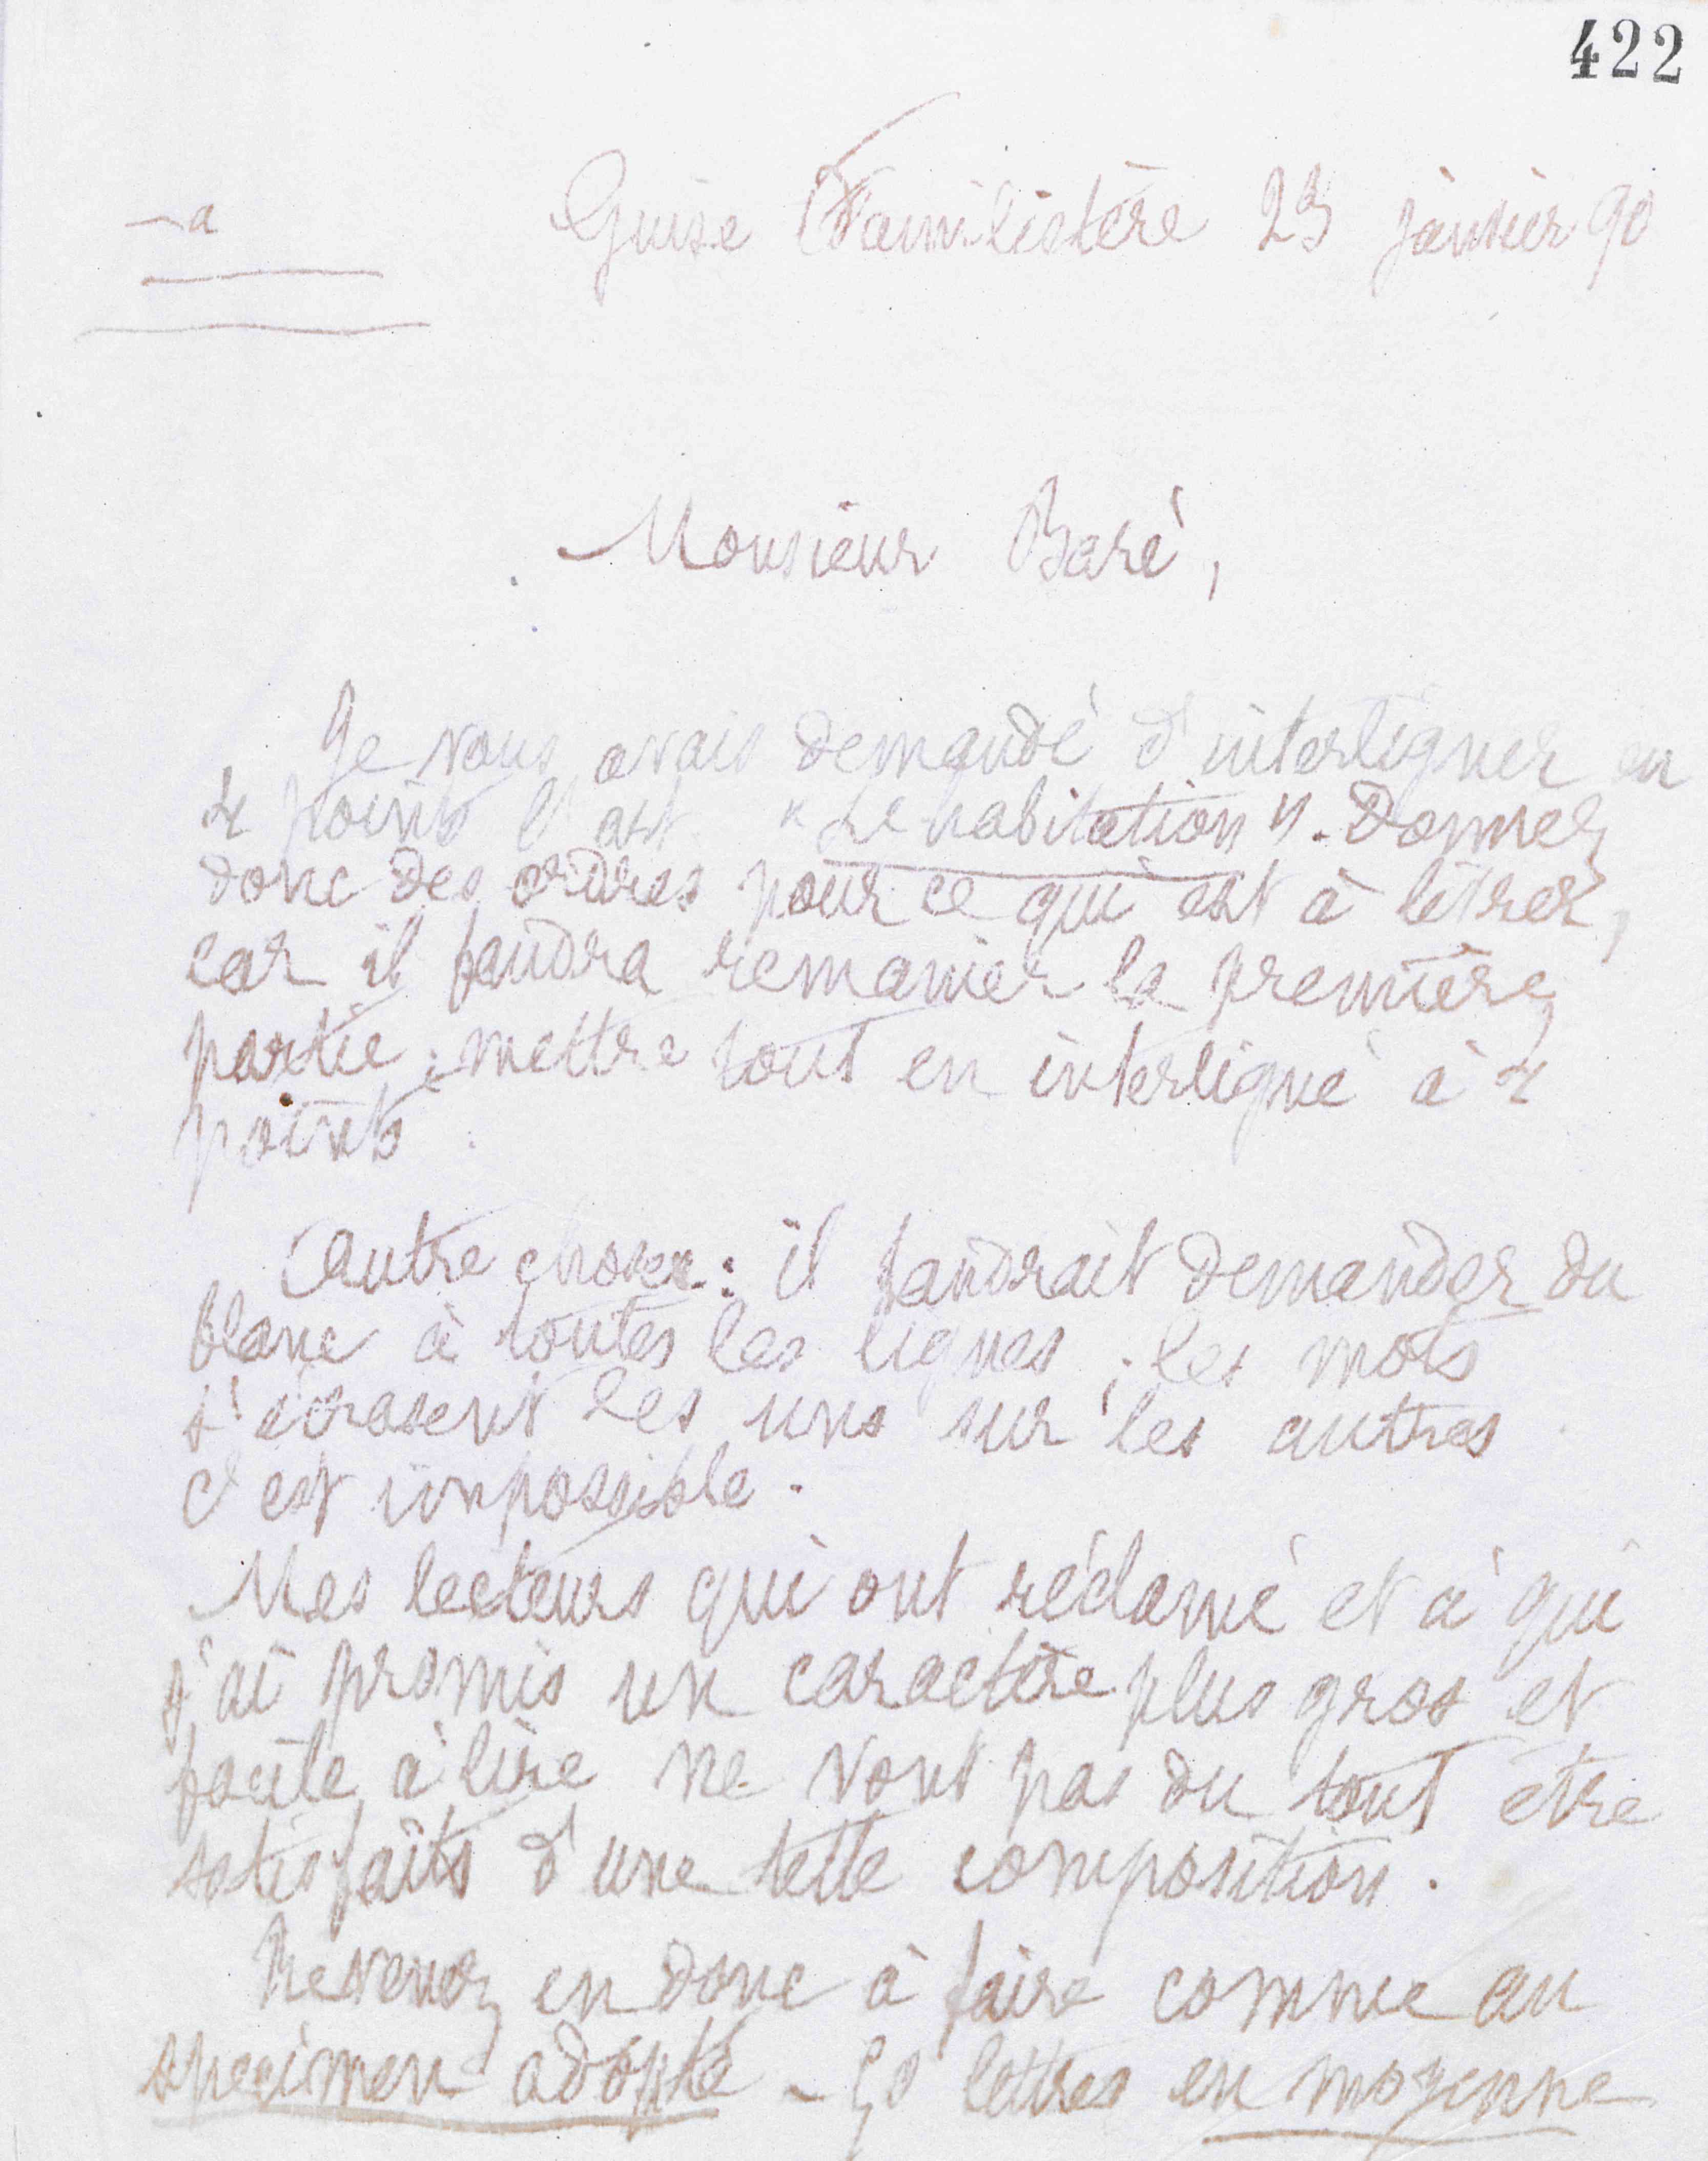 422
Guise Familistère 23 janvier 90
Monsieur Baré,
Je vous avais demandé d'interligner en
4 points l'art. "Le habitation". Donnez
donc des ordres pour ce qui est à
car il faudra remanier la première
partie ; mettre tout en interligné à 4
points.
Autre chose : il faudrait demander du
blanc à toutes les lignes ; les mots
s'écrasent les uns sur les autres
c'est impossible.
Mes lecteurs qui ont réclamé et à qui
j'ai promis un caractère plus gros et
facile à lire ne vont pas du tout etre
satisfaits d'une telle composition.
Revenez en donc à faire comme au
specimen adopté – 50 lettres en moyenne